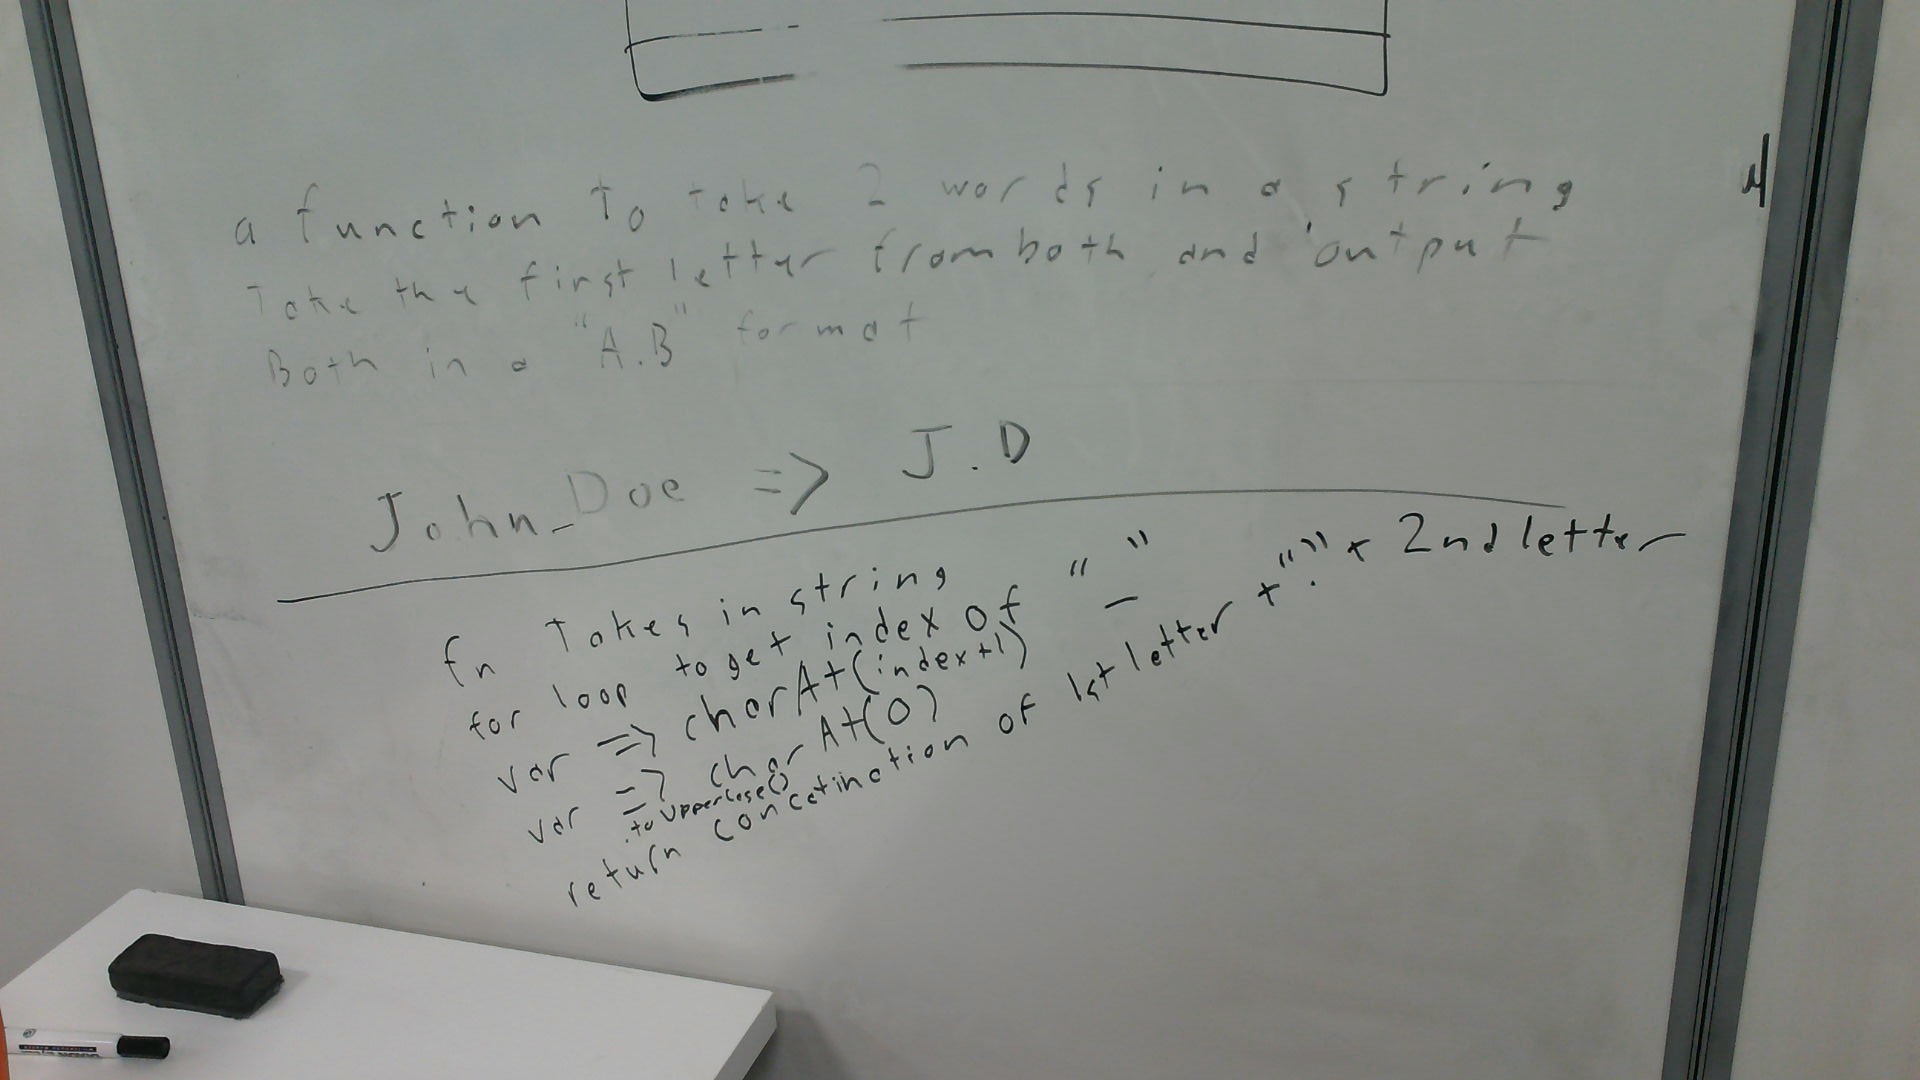 a function To take 2 words in a string
Take the first letter from both and output
Both in a "A.B" format
John_Doe => J.D
fn Takes in string
for loop to get index of "_"
var => charAt(index+1)
var => charAt(0)
.toUpperCase()
return concatination of 1st letter + "." + 2nd letter